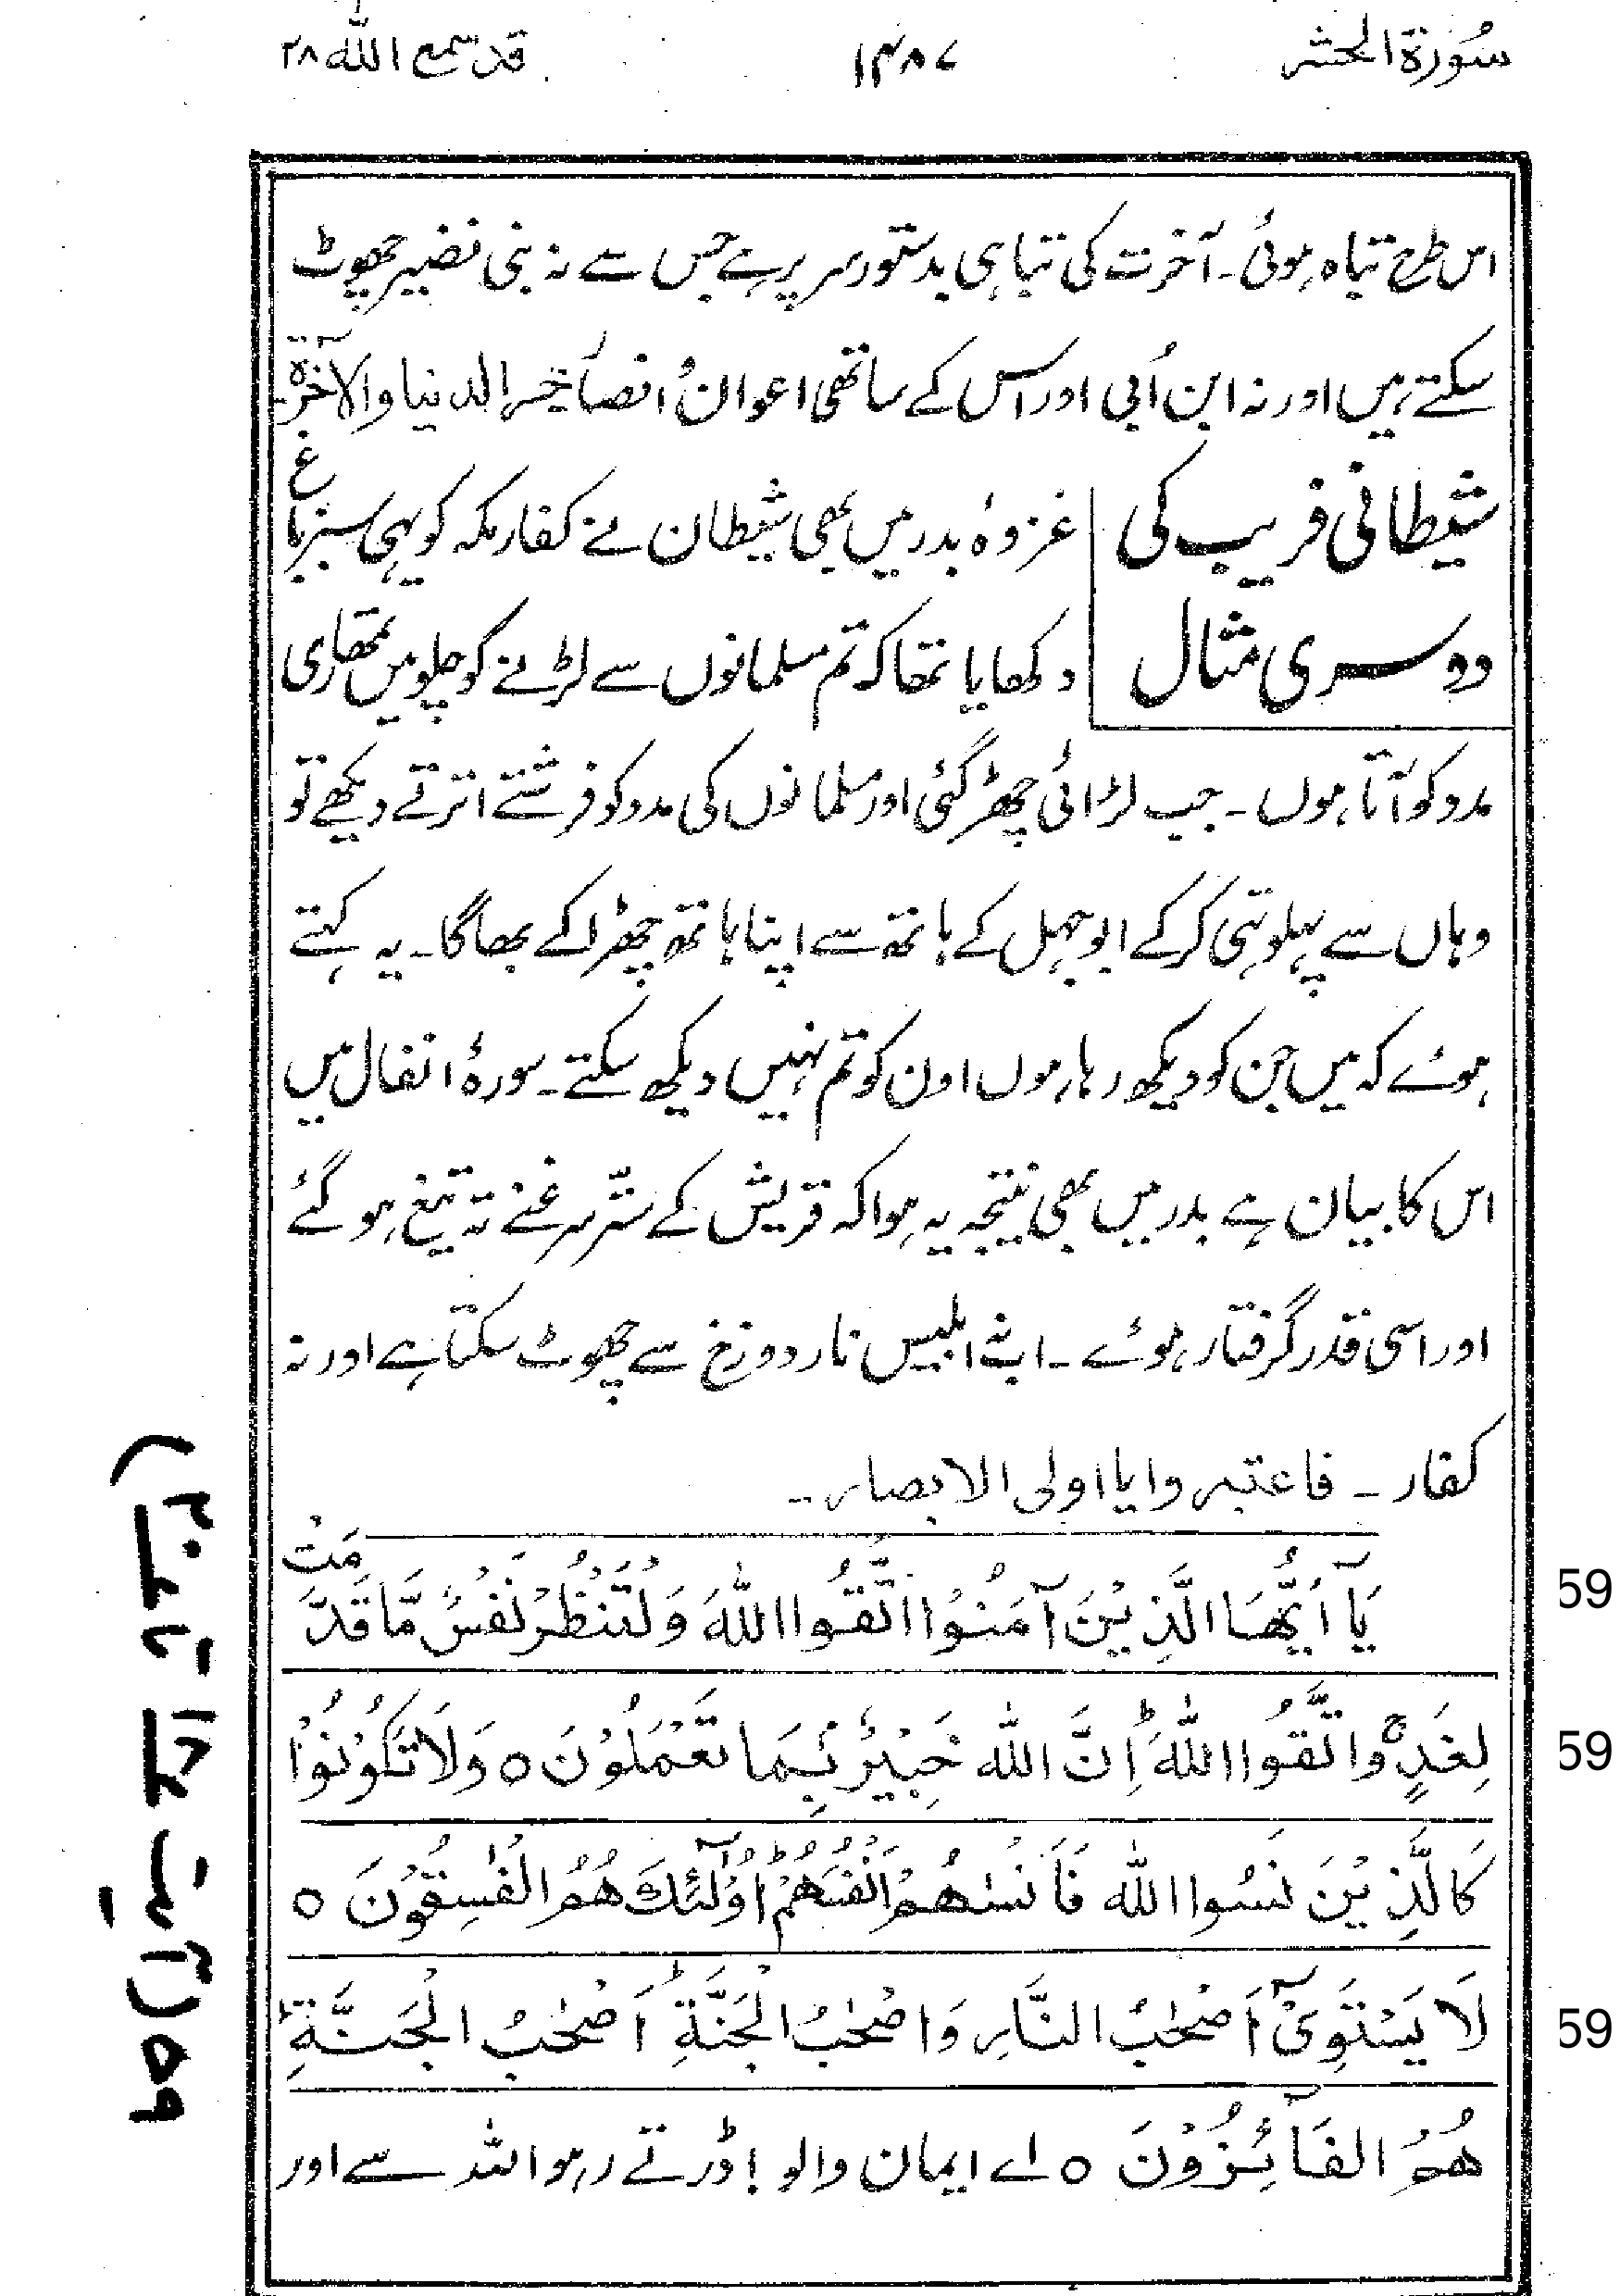 سُورَة الحشر ۱۴۸۷ قد سمع الله ۲۸
اس طرح تباہ ہوئی۔ آخرت کی تباہی بدستور سر پر ہے جس سے نہ بنی نضیر چھوٹ
سکتے ہیں اور نہ ابن اُبی اور اس کے ساتھی اعوان و انصار خسر الدنیا والآخرۃ۔
شیطانی فریب کی
دوسری مثال
غزوۂ بدر میں بھی شیطان نے کفار مکہ کو یہی سبز باغ
دکھایا تھا کہ تم مسلمانوں سے لڑنے کو چلو میں تمھاری
مدد کو آتا ہوں۔ جب لڑائی چھڑ گئی اور مسلمانوں کی مدد کو فرشتے اترتے دیکھے تو
وہاں سے پہلوتہی کر کے ابوجہل کے ہاتھ سے اپنا ہاتھ چھڑا کے بھاگا۔ یہ کہتے
ہوئے کہ میں جن کو دیکھ رہا ہوں اون کو تم نہیں دیکھ سکتے۔ سورۂ انفال میں
اس کا بیان ہے بدر میں بھی نتیجہ یہ ہوا کہ قریش کے ستّر سرغنے تہ تیغ ہو گئے
اور اسی قدر گرفتار ہوئے۔ اب نہ ابلیس نار دوزخ سے چھوٹ سکتا ہے اور نہ
کفار۔ فاعتبروا یا اولی الابصار۔
يَآ اَيُّهَا الَّذِيْنَ آمَنُوا اتَّقُوا اللّٰهَ وَلْتَنْظُرْ نَفْسٌ مَّا قَدَّمَتْ
59
لِغَدٍ ۚ وَاتَّقُوا اللّٰهَ ؕ اِنَّ اللّٰه خَبِيْرٌ بِمَا تَعْمَلُوْنَ ○ وَلَا تَكُوْنُوْا
59
كَالَّذِيْنَ نَسُوا اللّٰه فَاَنْسٰهُمْ اَنْفُسَهُمْ ؕ اُولٰٓئِكَ هُمُ الْفٰسِقُوْنَ ○
لَا يَسْتَوِيْٓ اَصْحٰبُ النَّارِ وَاَصْحٰبُ الْجَنَّةِ ؕ اَصْحٰبُ الْجَنَّةِ
59
هُمُ الفَآئِزُوْنَ ○ اے ایمان والو! ڈرتے رہو اللہ سے اور